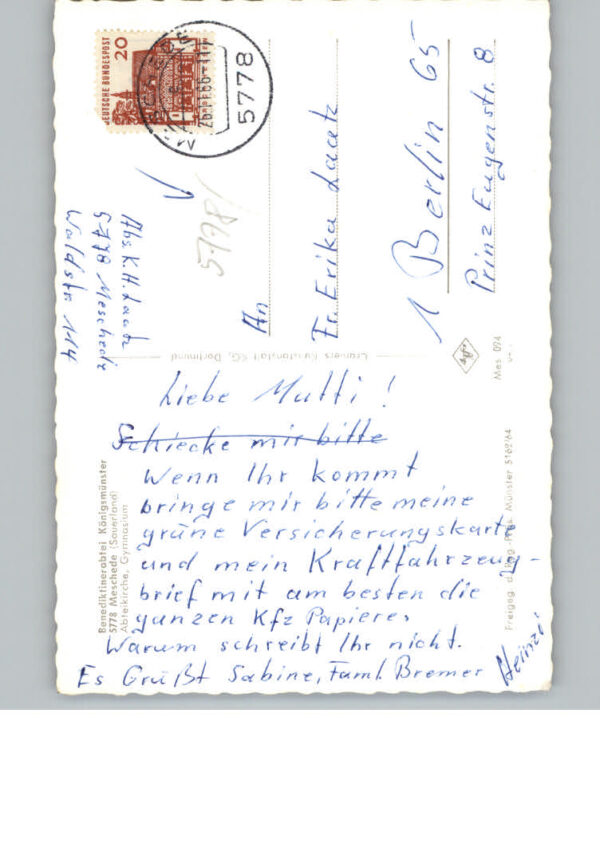 Liebe Mutti!
Schiecke mir bitte
Wenn Ihr kommt
bringe mir bitte meine
grüne Versicherungskarte
und mein Kraftfahrzeug-
brief mit am besten die
ganzen Kfz Papiere.
Warum schreibt Ihr nicht.
Es Grüßt Sabine, Faml. Bremer
Heinzi
An
Fr. Erika Laatz
1 Berlin 65
Prinz Eugenstr. 8
Abs. K. H. Laatz
5778 Meschede
Waldstr 114
5778
DEUTSCHE BUNDESPOST
20
5778
Benediktinerabtei Königsmünster
5778 Meschede (Sauerland)
Abteikirche, Gymnasium
Cramers Kunstanstalt KG, Dortmund
Mes 094
Freigeg. d. Reg.-Präs. Münster 5169/64